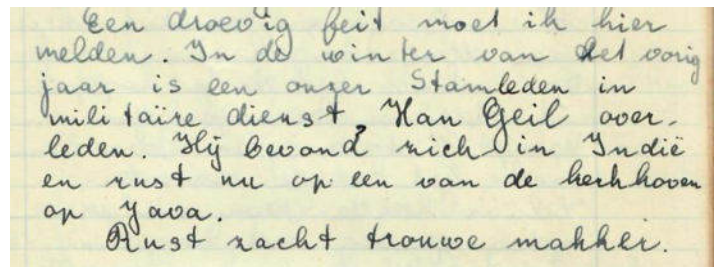 Een droevig feit moet ik hier
melden. In de winter van het vorig
jaar is een onzer Stamleden in
militaïre dienst, Han Geil over-
leden. Hij bevond zich in Indië
en rust nu op een van de kerkhoven
op Java.
Rust zacht trouwe makker.